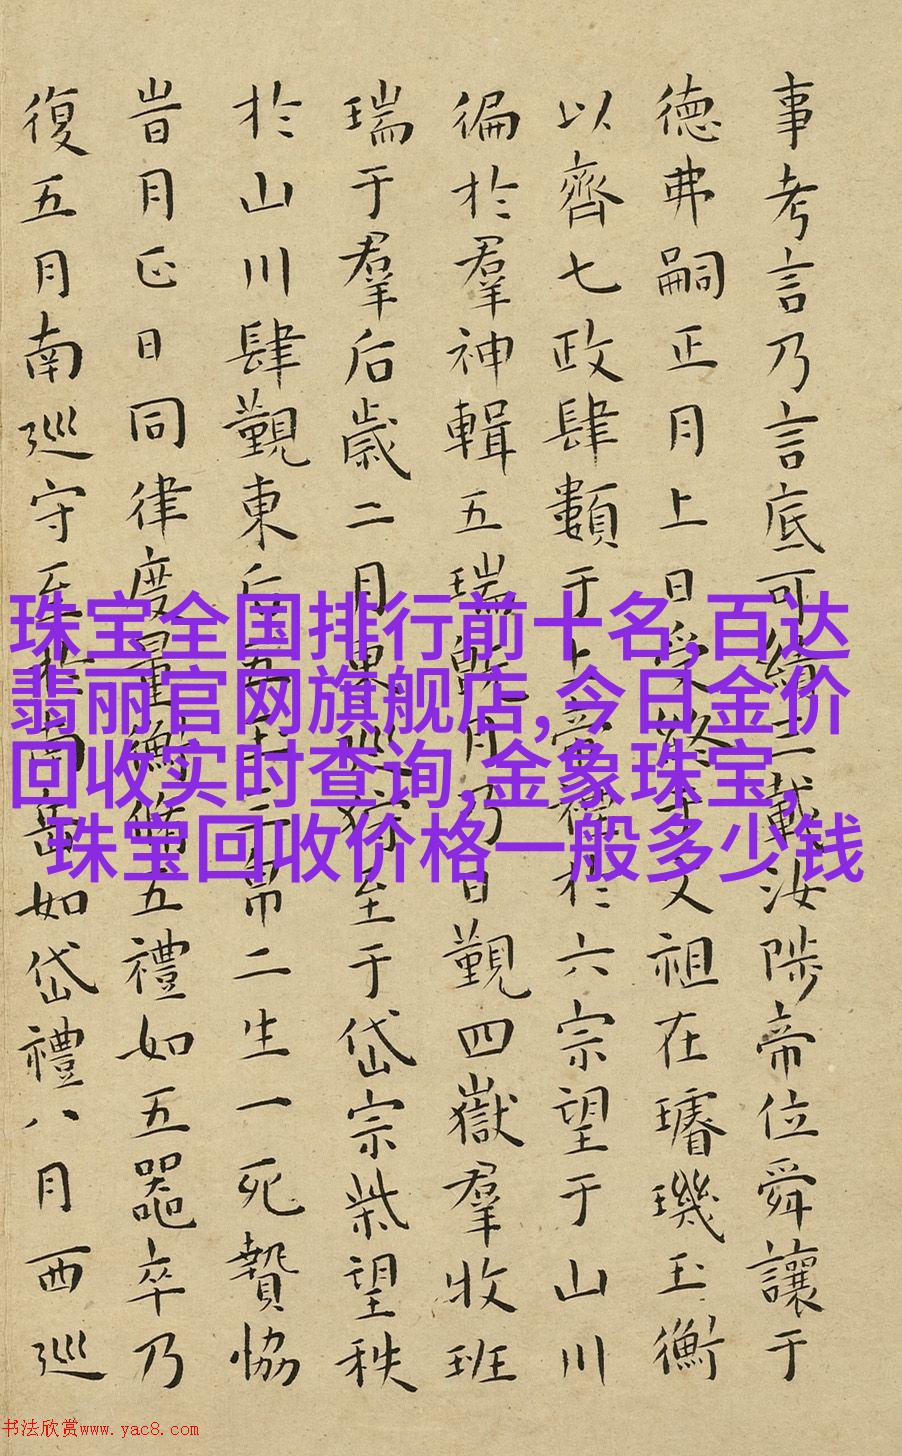 事考言乃言底可績三載汝陟帝位舜讓于
德弗嗣正月上日受終于文祖在璿璣玉衡
以齊七政肆類于上帝禋於六宗望于山川
徧於羣神輯五瑞旣月乃日覲四嶽羣牧班
瑞于羣后歲二月東巡狩至于岱宗柴望秩
於山川肆覲東后五玉三帛二生一死贄協
旹月正日同律度量衡脩五禮如五器卒乃
復五月南巡守至於南岳如岱禮八月西巡
珠宝全国排行前十名,百达
翡丽官网旗舰店,今日金价
回收实时查询,金象珠宝,
珠宝回收价格一般多少钱
书法欣赏www.yac8.com